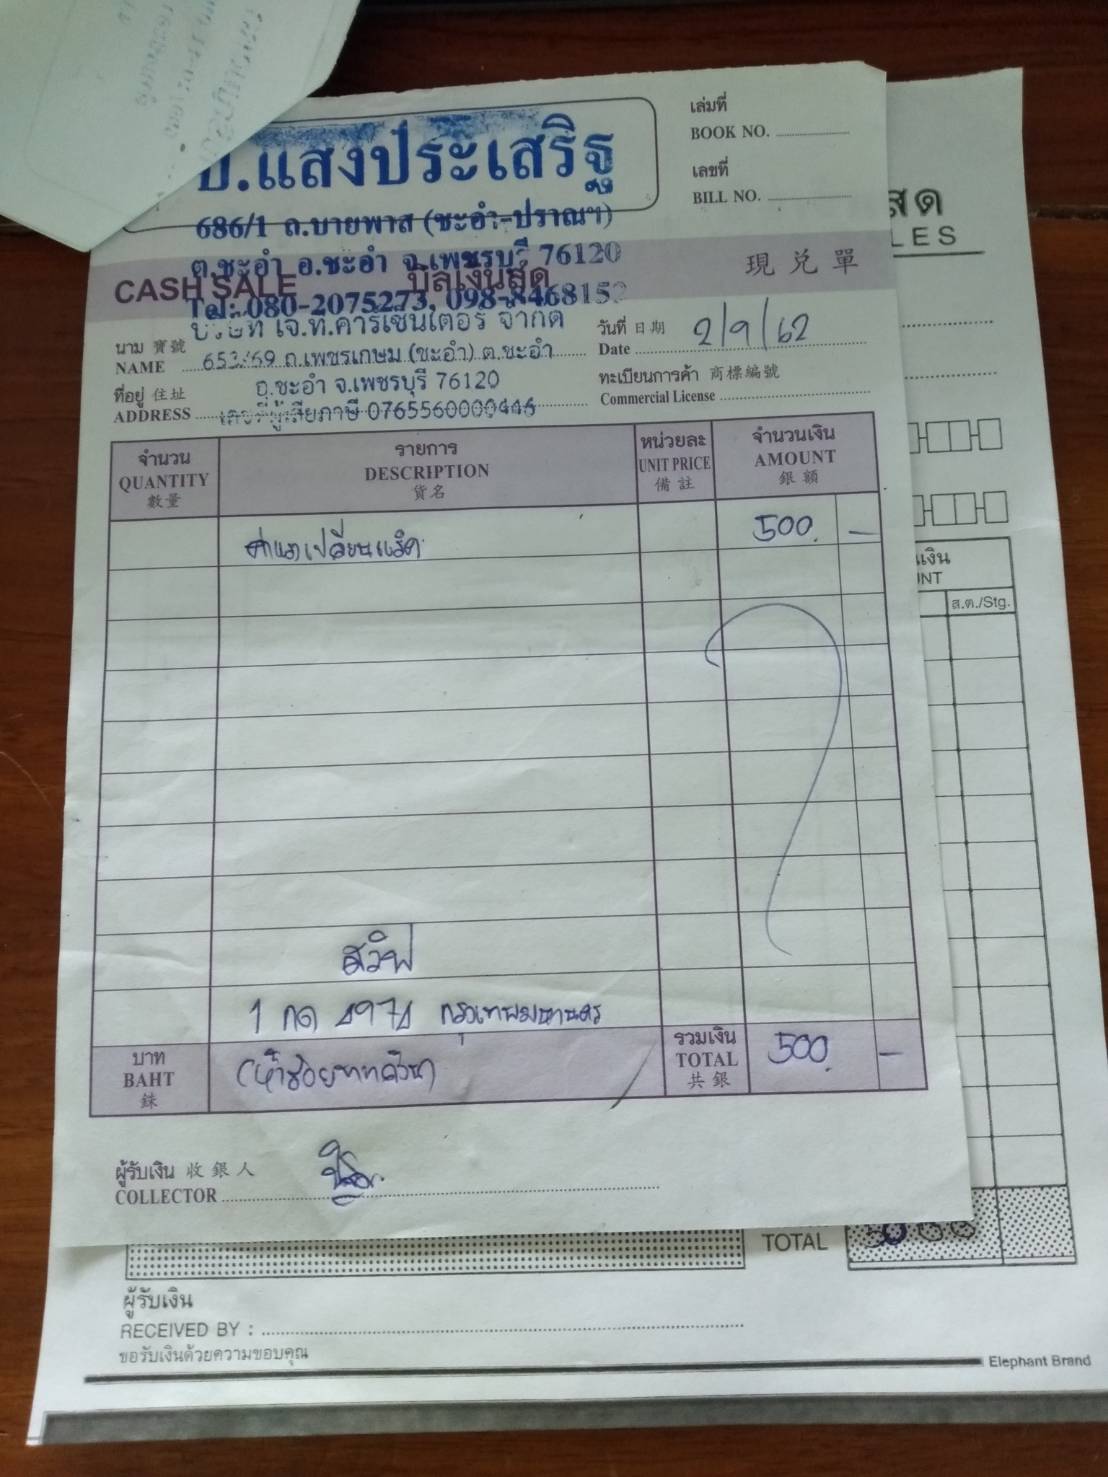 ป.แสงประเสริฐ
686/1 ถ.บายพาส (ชะอำ-ปราณฯ)
ต.ชะอำ อ.ชะอำ จ.เพชรบุรี 76120
Tel: 080-2075273, 098-8468152
เล่มที่
BOOK NO.
เลขที่
BILL NO.
CASH SALE บิลเงินสด 現兑單
บริษัท เจ.ที.คาร์เซ็นเตอร์ จำกัด
นาม 寶號
NAME 653/69 ถ.เพชรเกษม (ชะอำ) ต.ชะอำ
วันที่ 日期
Date 2/9/62
ที่อยู่ 住址
ADDRESS อ.ชะอำ จ.เพชรบุรี 76120
เลขที่ผู้เสียภาษี 0765560000446
ทะเบียนการค้า 商標編號
Commercial License
จำนวน
QUANTITY
數量
รายการ
DESCRIPTION
貨名
หน่วยละ
UNIT PRICE
備註
จำนวนเงิน
AMOUNT
銀額
ค่าแรงเปลี่ยนแร็ค 500.-
สวิฟ
1 กด 4974 กรุงเทพมหานคร
บาท
BAHT
銖
(ห้าร้อยบาทถ้วน)
รวมเงิน
TOTAL
共銀
500.-
ผู้รับเงิน 收銀人
COLLECTOR
สด
LES
เงิน
NT
ส.ต./Stg.
TOTAL
ผู้รับเงิน
RECEIVED BY :
ขอรับเงินด้วยความขอบคุณ
Elephant Brand